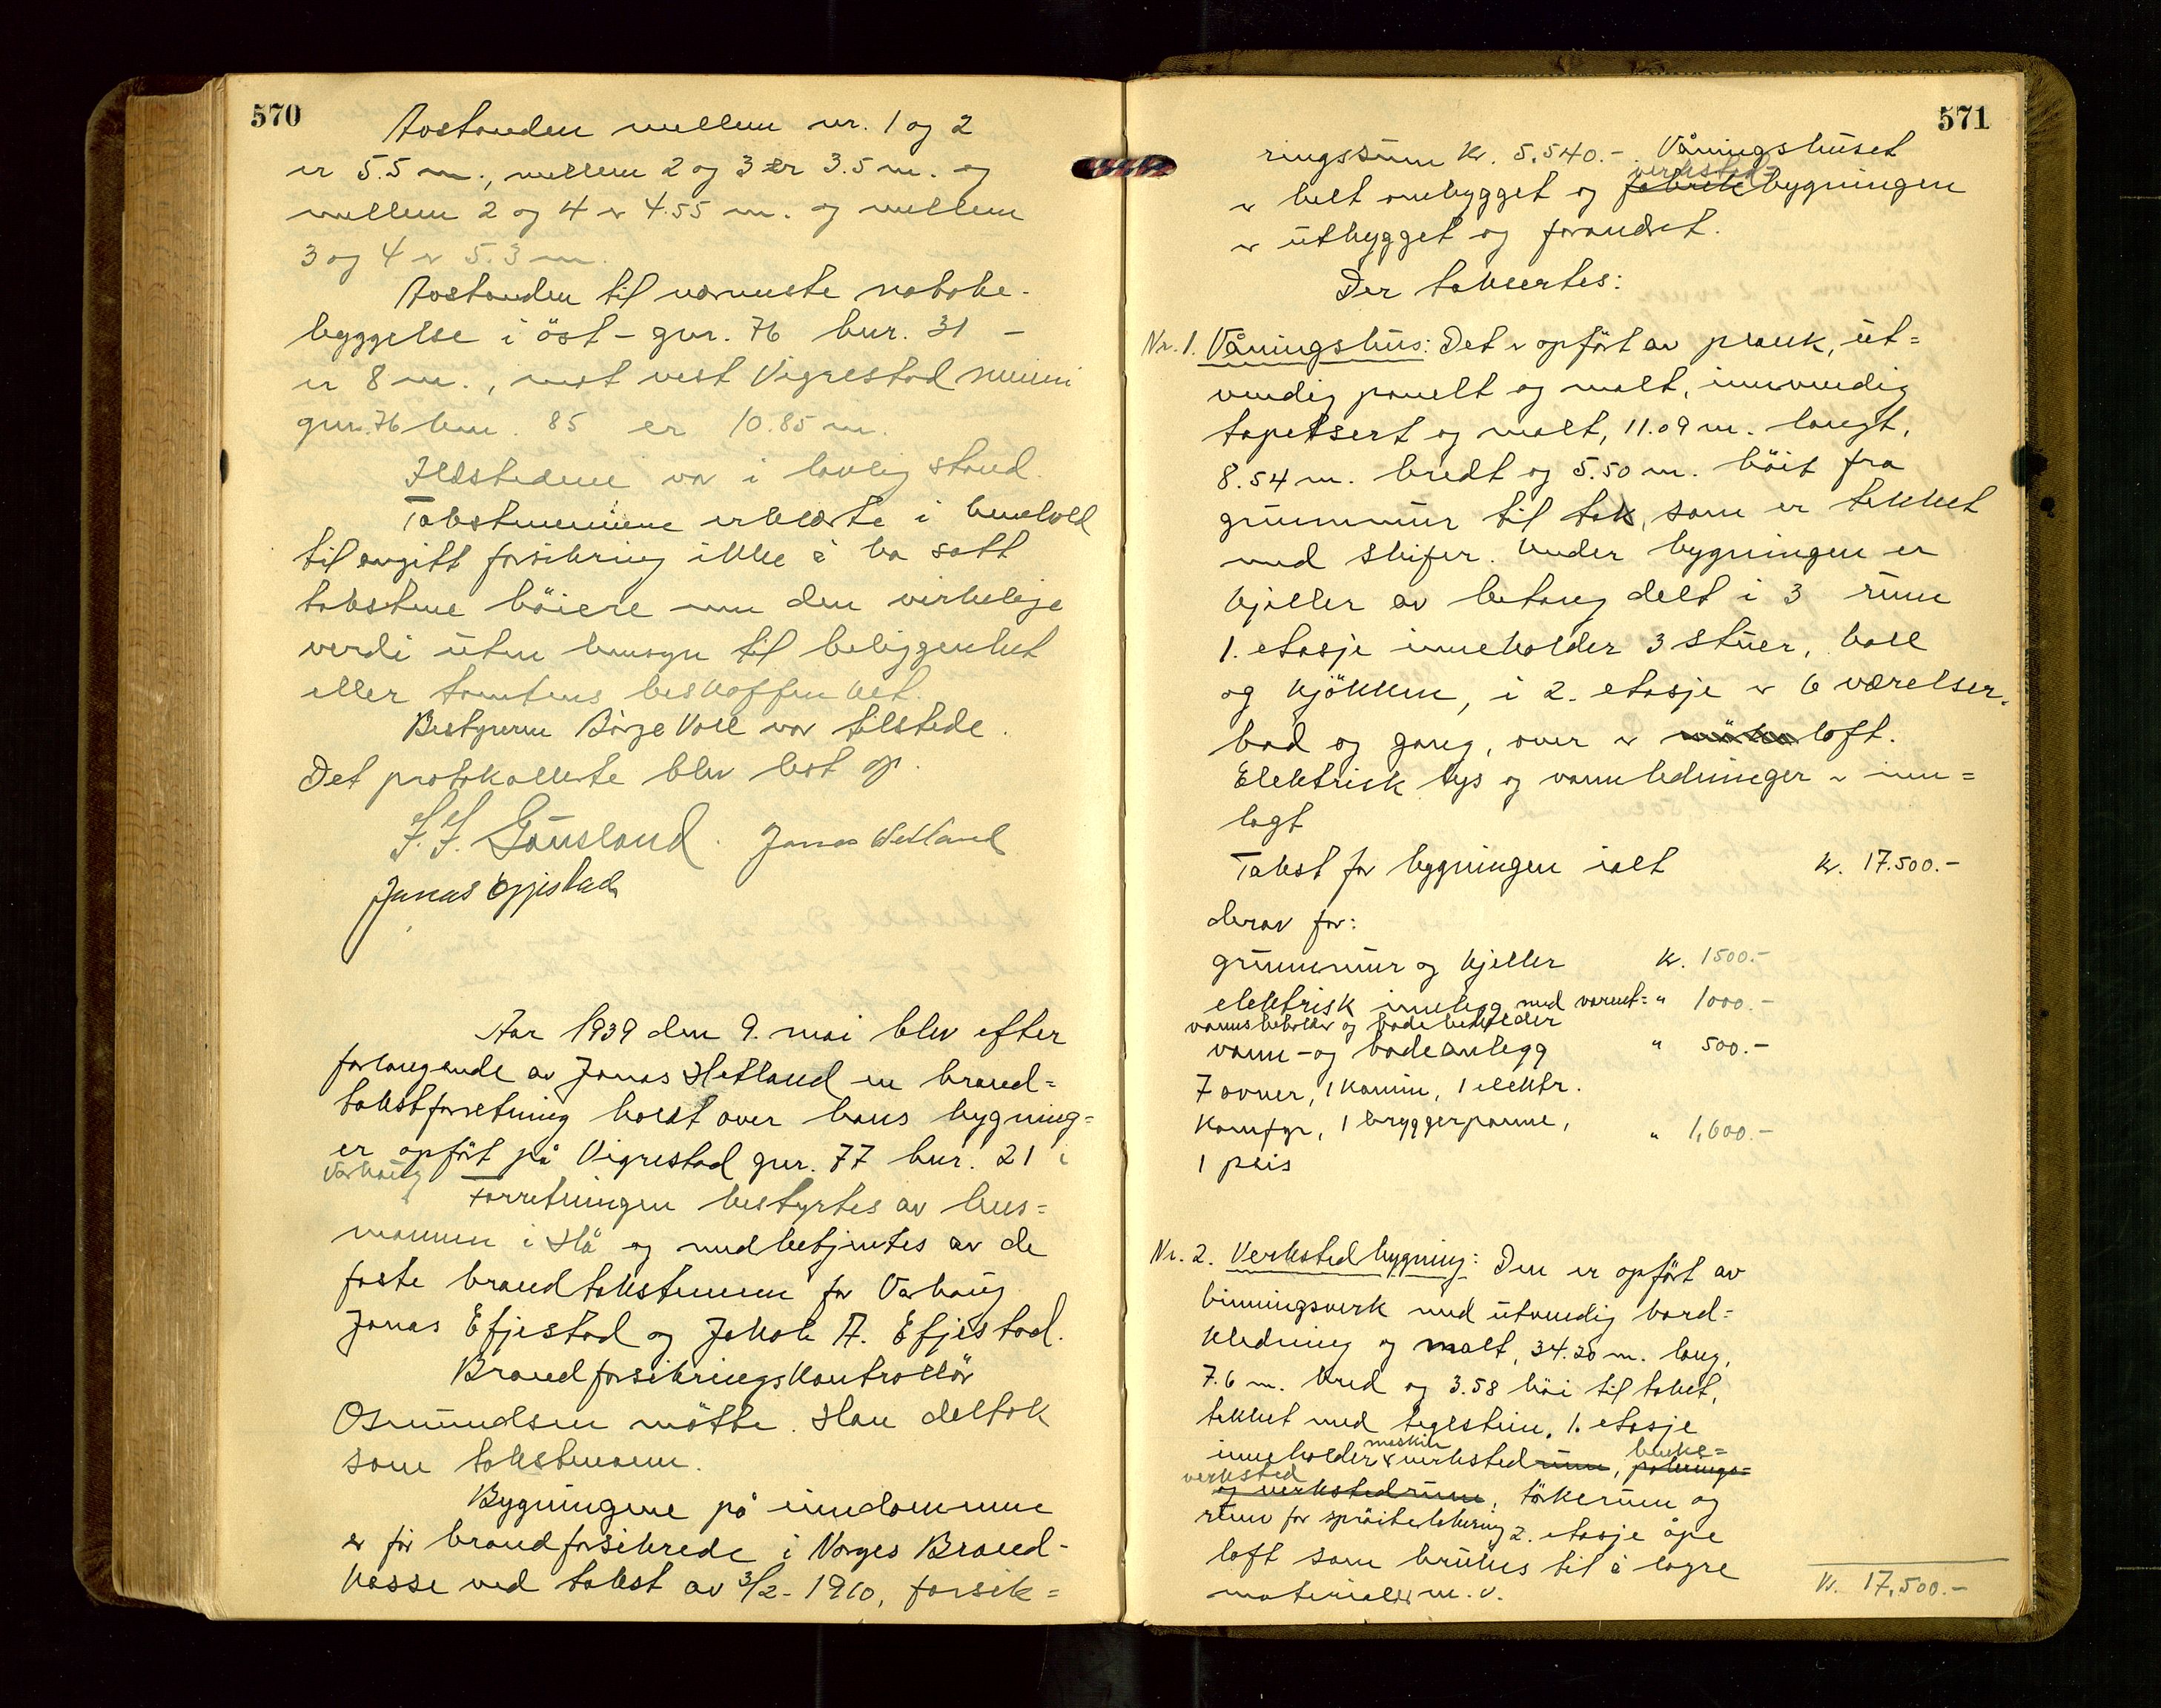 570
Avstanden mellem nr. 1 og 2
er 5.5 m., mellem 2 og 3 er 3.5 m. og
mellem 2 og 4 er 4.55 m. og mellem
3 og 4 er 5.3 m.
Avstanden til nærmeste nabobe-
byggelse i öst - gnr. 76 bnr. 31 -
er 8 m., mot vest Vigrestad
gnr. 76 bnr. 85 er 10.85 m.
Ildstedene var i lovlig stand.
Takstmennene erklærte i henhold
til avgitt forsikring ikke å ha satt
takstene höiere enn den virkelige
verdi uten hensyn til beliggenhet
eller tomtens beskaffenhet.
Bestyreren Börge Voll var tilstede.
Det protokollerte blev lest op.
Gausland. Jonas Hetland
Jonas Efjestad
Aar 1939 den 9. mai blev efter
forlangende av Jonas Hetland en brand=
takstforretning holdt over hans bygning=
er opfört på Vigrestad gnr. 77 bnr. 21 i
Varhaug
Forretningen bestyrtes av lens=
mannen i Hå og medbetjentes av de
faste brandtakstmenn for Varhaug
Jonas Efjestad og Jakob A. Efjestad.
Brandforsikringskontrollör
Osmundsen mötte. Han deltok
som takstmann.
Bygningene på eiendommen
er för brandforsikrede i Norges Brand-
kasse ved takst av 3/2-1910, forsik=
571
ringssum kr. 5.540.-. Våningshuset
verksted=
er helt ombygget og fabrikkbygningen
er utbygget og forandret.
Der takseertes:
Nr. 1. Våningshus: Det er opfört av plank, ut=
vendig panelt og malt, innvendig
tapetsert og malt, 11.09 m. langt,
8.54 m. bredt og 5.50 m. höit fra
grunnmur til tak, som er tekket
med skifer. Under bygningen er
kjeller av betong delt i 3 rum
1. etasje inneholder 3 stuer, hall
og kjökken, i 2. etasje er 6 værelser,
bad og gang, over er loft.
Elektrisk lys og vannledninger er inn=
lagt
Takst for bygningen ialt kr. 17.500.-
derav for:
grunnmur og kjeller kr. 1500.-
elektrisk innlegg med varmt= " 1000.-
vannsbeholder og badebeholder
vann- og badeanlegg " 500.-
7 ovner, 1 kamin, 1 elektr.
Komfyr, 1 bryggerpanne, " 1,600.-
1 peis
Nr. 2. Verkstedbygning: Den er opfört av
binningsverk med utvendig bord=
kledning og malt, 34.20 m. lang,
7.6 m. bred og 3.58 höi til taket,
tekket med teglstein. 1. etasje
maskin benke=
inneholder verkstedrum, polerings=
verksted
og verkstedrum, törkerum og
rum for spröitelakering 2. etasje åpe
loft som brukes til å lagre
materialer m. v.
kr. 17,500.-